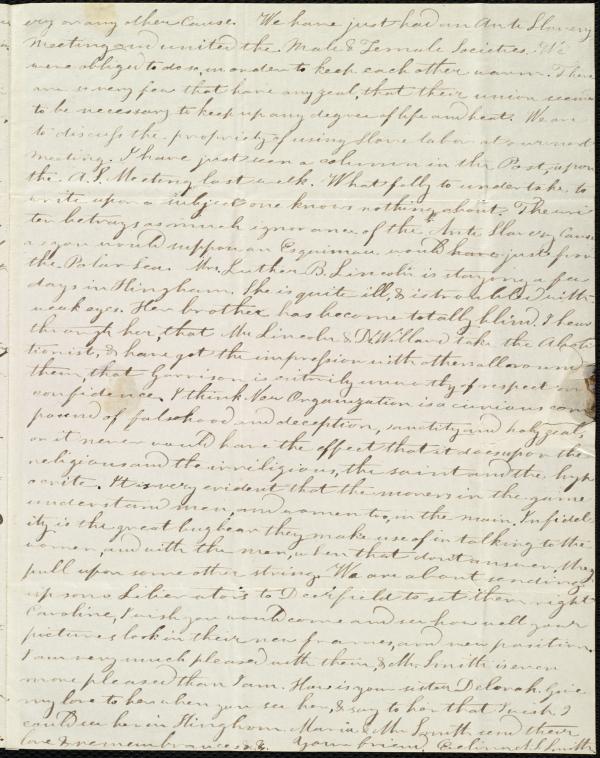 ery or any other cause. We have just had an Anti Slavery
Meeting and united the Male & Female Societies. We
were obliged to do so, in order to keep each other warm. There
are so very few that have any zeal, that their union seems
to be necessary to keep up any degree of life and heat. We are
to discuss the propriety of using Slave labor at our next
meeting. I have just seen a column in the Post, upon
the A.S. Meeting last week. What folly to undertake to
write upon a subject one knows nothing about. The wri
ter betrays as much ignorance of the Anti Slavery Cause
as you would suppose an Esquimau would have just from
the Polar Sea. Mrs. Luther B. Lincoln is staying a few
days in Hingham. She is quite ill, & is troubled with
weak eyes. Her brother has become totally blind. I hear
through her, that Mr Lincoln & Dr Willard take the Aboli
tionist, & have got the impression with others all around
them, that Garrison is entirely unworthy of respect or
confidence. I think New Organization is a curious com
pound of falsehood and deception, sanctity and holy zeal,
or it never would have the effect that it does upon the
religious and the irreligious, the saint and the hyp
ocrite. It is very evident that the movers in the game
understand men, and women too, in the main. Infidel
ity is the great bugbear they make use of in talking to the
women, and with the men, when that don't answer, they
pull upon some other string. We are about sending
up some Liberators to Deerfield to set them right.
Caroline, I wish you would come and see how well your
pictures look in their new frames, and new position.
I am very much pleased with them, & Mr. Smith is even
more pleased than I am. How is your sister Deborah. Give
my love to her when you see her, & say to her that I wish I
could see her in Hingham. Maria & Mr Smith send their
love & remembrance &c. Your friend, Evelina A S Smith